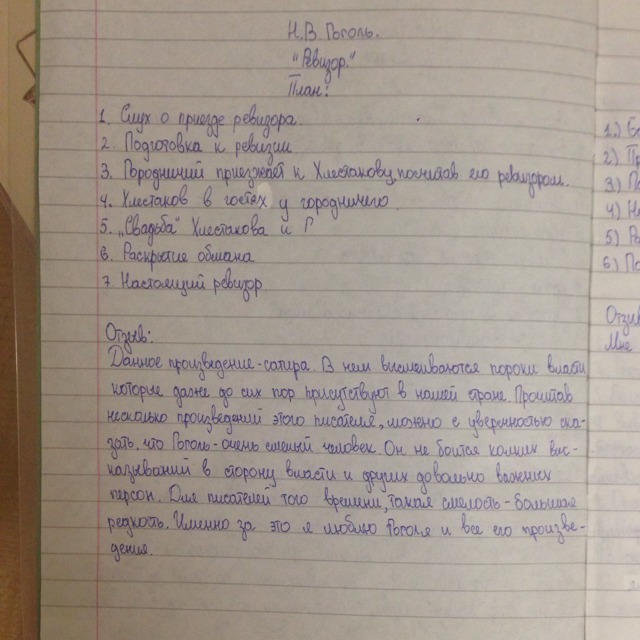 Н.В. Гоголь.
"Ревизор."
План:
1. Слух о приезде ревизора.
2. Подготовка к ревизии
3. Городничий приезжает к Хлестакову, посчитав его ревизором.
4. Хлестаков в гостях у городничего
5. "Свадьба" Хлестакова и Г
6. Раскрытие обмана
7. Настоящий ревизор
Отзыв:
Данное произведение-сатира. В нем высмеиваются пороки власти
которые даже до сих пор присутствуют в нашей стране. Прочитав
несколько произведений этого писателя, можно с уверенностью ска-
зать, что Гоголь-очень смелый человек. Он не боится колких выс-
казываний в сторону власти и других довольно важных
персон. Для писателей того времени, такая смелость - большая
редкость. Именно за это я люблю Гоголя и все его произве-
дения.
1.)
2)
3)
4)
5)
6)
Отзыв
Мне